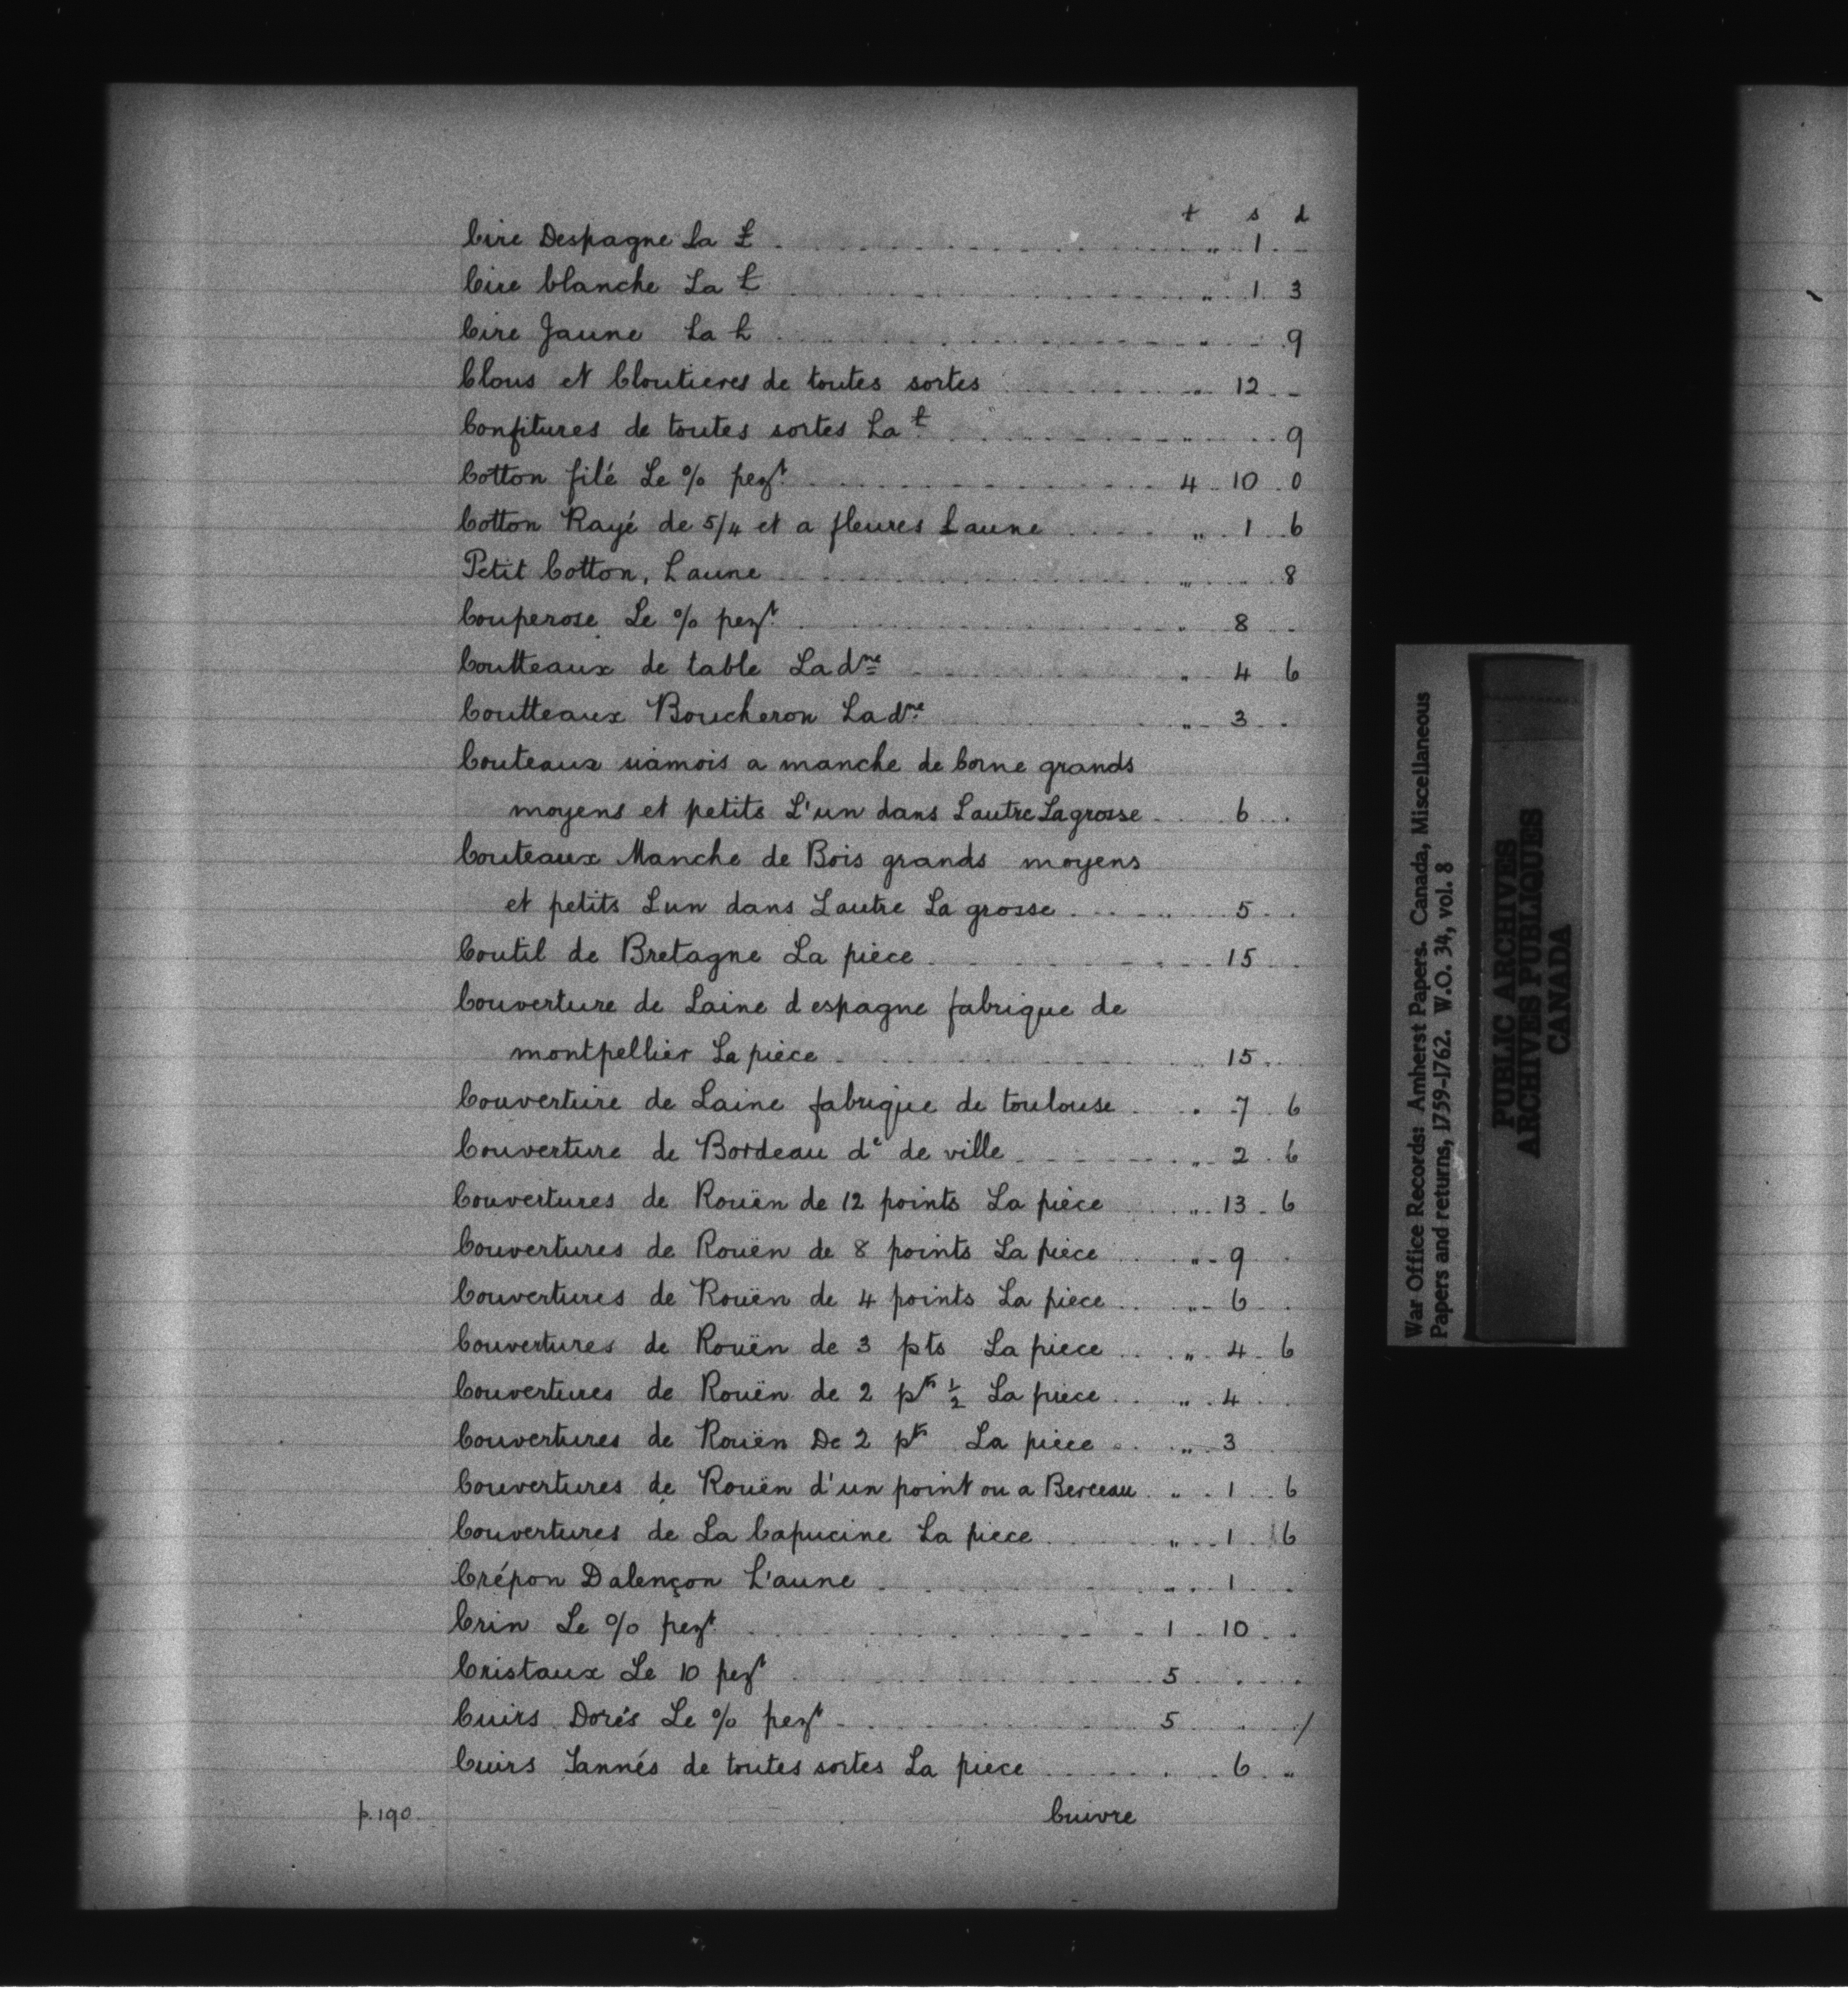 ₶ s d
Cire Despagne La ₶ . . . „ 1 -
Cire blanche La ₶ . . . „ 1 3
Cire Jaune La ₶ . . . „ 9
Clous et Cloutieres de toutes sortes . . . „ 12 -
Confitures de toutes sortes La ₶ . . . „ 9
Cotton filé Le % pezt . . . 4 10 0
Cotton Rayé de 5/4 et a fleures Laune . . . „ 1 6
Petit Cotton, Laune . . . „ 8
Couperose Le % pezt . . . „ 8
Coutteaux de table La dne . . . „ 4 6
Coutteaux Boucheron La dne . . . „ 3
Couteaux siamois a manche de Corne grands
moyens et petits L'un dans Lautre La grosse . . . 6
Couteaux Manche de Bois grands moyens
et petits Lun dans Lautre La grosse . . . „ 5
Coutil de Bretagne La pièce . . . 15
Couverture de Laine d espagne fabrique de
montpellier La pièce . . . 15
Couverture de Laine fabrique de toulouse . . . 7 6
Couverture de Bordeau de de ville . . . „ 2 6
Couvertures de Rouën de 12 points La pièce . . . „ 13 6
Couvertures de Rouën de 8 points La pièce . . . „ 9
Couvertures de Rouën de 4 points La pièce . . . „ 6
Couvertures de Rouën de 3 pts La piece . . . „ 4 6
Couvertures de Rouën de 2 pts ½ La piece . . . „ 4
Couvertures de Rouën De 2 pts La piece . . . „ 3
Couvertures de Rouën d'un point ou a Berceau . . . „ 1 6
Couvertures de La Capucine La piece . . . „ 1 6
Crépon Dalençon L'aune . . . „ 1
Crin Le % pezt . . . 1 10
Cristaux Le 10 pezt . . . 5
Cuirs Dorés Le % pezt . . . 5 /
Cuirs Tannés de toutes sortes La piece . . . 6 „
p.190. Cuivre
War Office Records: Amherst Papers. Canada, Miscellaneous
Papers and returns, 1759-1762. W.O. 34, vol. 8
PUBLIC ARCHIVES
ARCHIVES PUBLIQUES
CANADA